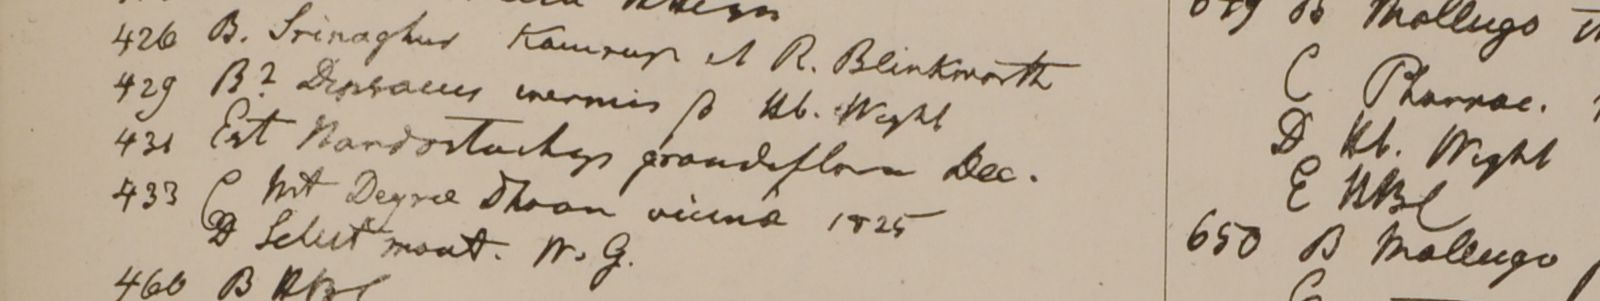 426 B. Srinaghur Kamrup et R. Blinkworth
429 B? Dipsacus inermis β Hb. Wight
431 Est Nardostachys grandiflora Dec.
433 C Mt Degree Dhoon vicina 1825
D Selist mont. W. G.
460 B HBC
649 B Mollugo
C Pharnac.
D Hb. Wight
E HBC
650 B Mollugo